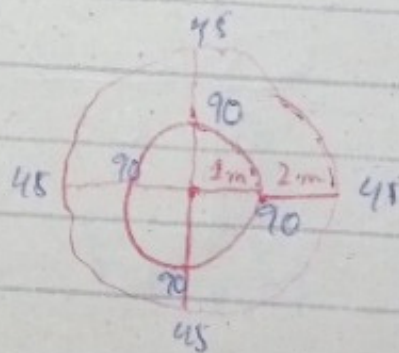 45
90
45 90 1m 2m 45
90
90
45